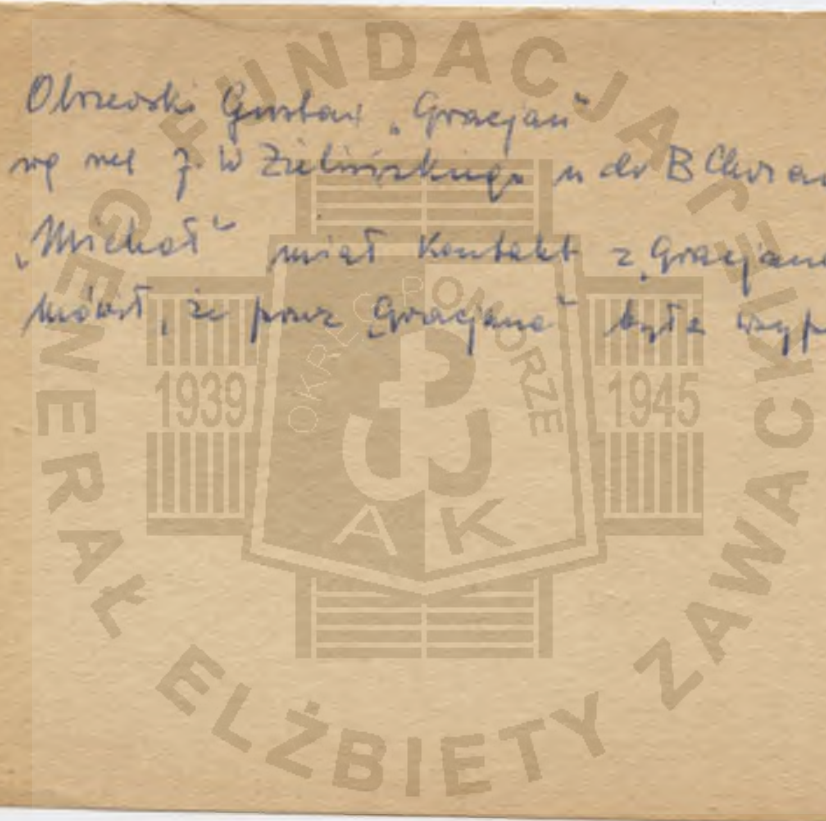 Olszewski Gustaw „Gracjan”
wg rel J. W Zielińskiego u dr B Chrzan
„Michał” miał kontakt z „Gracjane
mówił, że przez „Gracjana” była wyp
FUNDACJA
GENERAŁ ELŻBIETY ZAWACKIEJ
OKRĘG POMORZE
1939
1945
AK